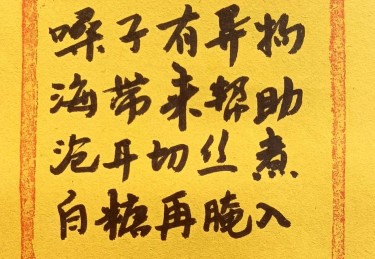 嗓子有异物
海带来帮助
沧耳切丝煮
白糖再腌入